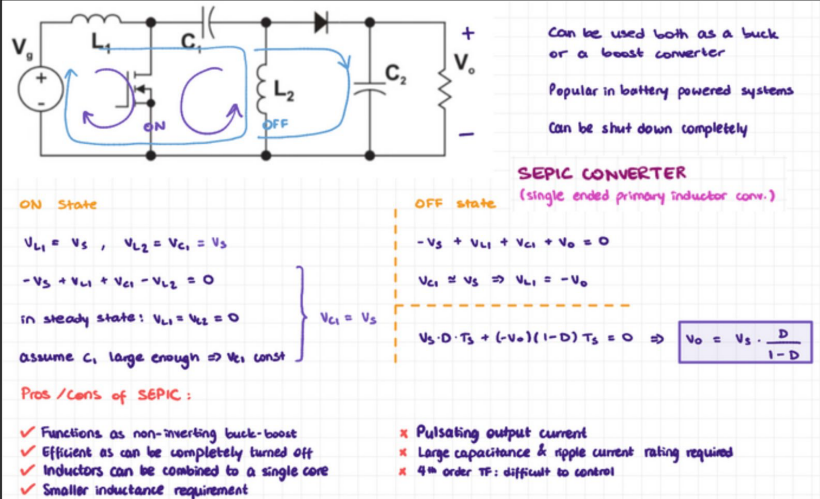 L₁
C₁
Vg
+
-
ON
L₂
OFF
C₂
+
Vo
−
Can be used both as a buck
or a boost converter
Popular in battery powered systems
Can be shut down completely
SEPIC CONVERTER
(single ended primary inductor conv.)
ON State
V_L1 = Vs , V_L2 = V_C1 = Vs
-Vs + V_L1 + V_C1 - V_L2 = 0
in steady state: V_L1 = V_L2 = 0
assume C₁ large enough ⇒ V_C1 const
V_C1 = Vs
OFF state
-Vs + V_L1 + V_C1 + Vo = 0
V_C1 ≃ Vs ⇒ V_L1 = -Vo
Vs·D·Ts + (-Vo)(1-D) Ts = 0 ⇒ Vo = Vs · D / 1-D
Pros/Cons of SEPIC:
✓ Functions as non-inverting buck-boost
✓ Efficient as can be completely turned off
✓ Inductors can be combined to a single core
✓ Smaller inductance requirement
× Pulsating output current
× Large capacitance & ripple current rating required
× 4th order TF: difficult to control